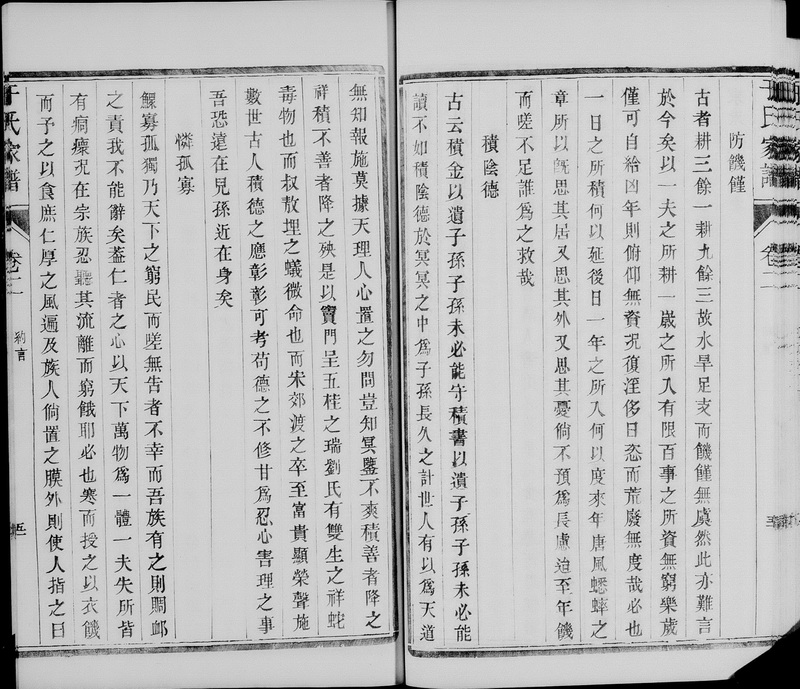 防饑饉
古者耕三餘一耕九餘三故水旱足支而饑饉無虞然此亦難言
於今矣以一夫之所耕一歲之所入有限百事之所資無窮樂歲
僅可自給凶年則俯仰無資況復淫侈日恣而荒廢無度哉必也
一日之所積何以延後日一年之所入何以度來年唐風蟋蟀之
章所以旣思其居又思其外又思其憂倘不預為長慮迨至年饑
而嗟不足誰為之救哉
積陰德
古云積金以遺子孫子孫未必能守積書以遺子孫子孫未必能
讀不如積陰德於冥冥之中為子孫長久之計世人有以為天道
無知報施莫據天理人心置之勿問豈知冥鑒不爽積善者降之
祥積不善者降之殃是以竇門呈五桂之瑞劉氏有雙生之祥蛇
毒物也而叔敖埋之蟻微命也而宋郊渡之卒至富貴顯榮聲施
數世古人積德之應彰彰可考苟德之不修甘為忍心害理之事
吾恐遠在兒孫近在身矣
憐孤寡
鰥寡孤獨乃天下之窮民而嗟無告者不幸而吾族有之則賙卹
之責我不能辭矣葢仁者之心以天下萬物為一體一夫失所皆
有痌瘝況在宗族忍聽其流離而窮餓耶必也寒而授之以衣饑
而予之以食庶仁厚之風遍及族人倘置之膜外則使人指之曰
于氏家譜
卷二
約言
五